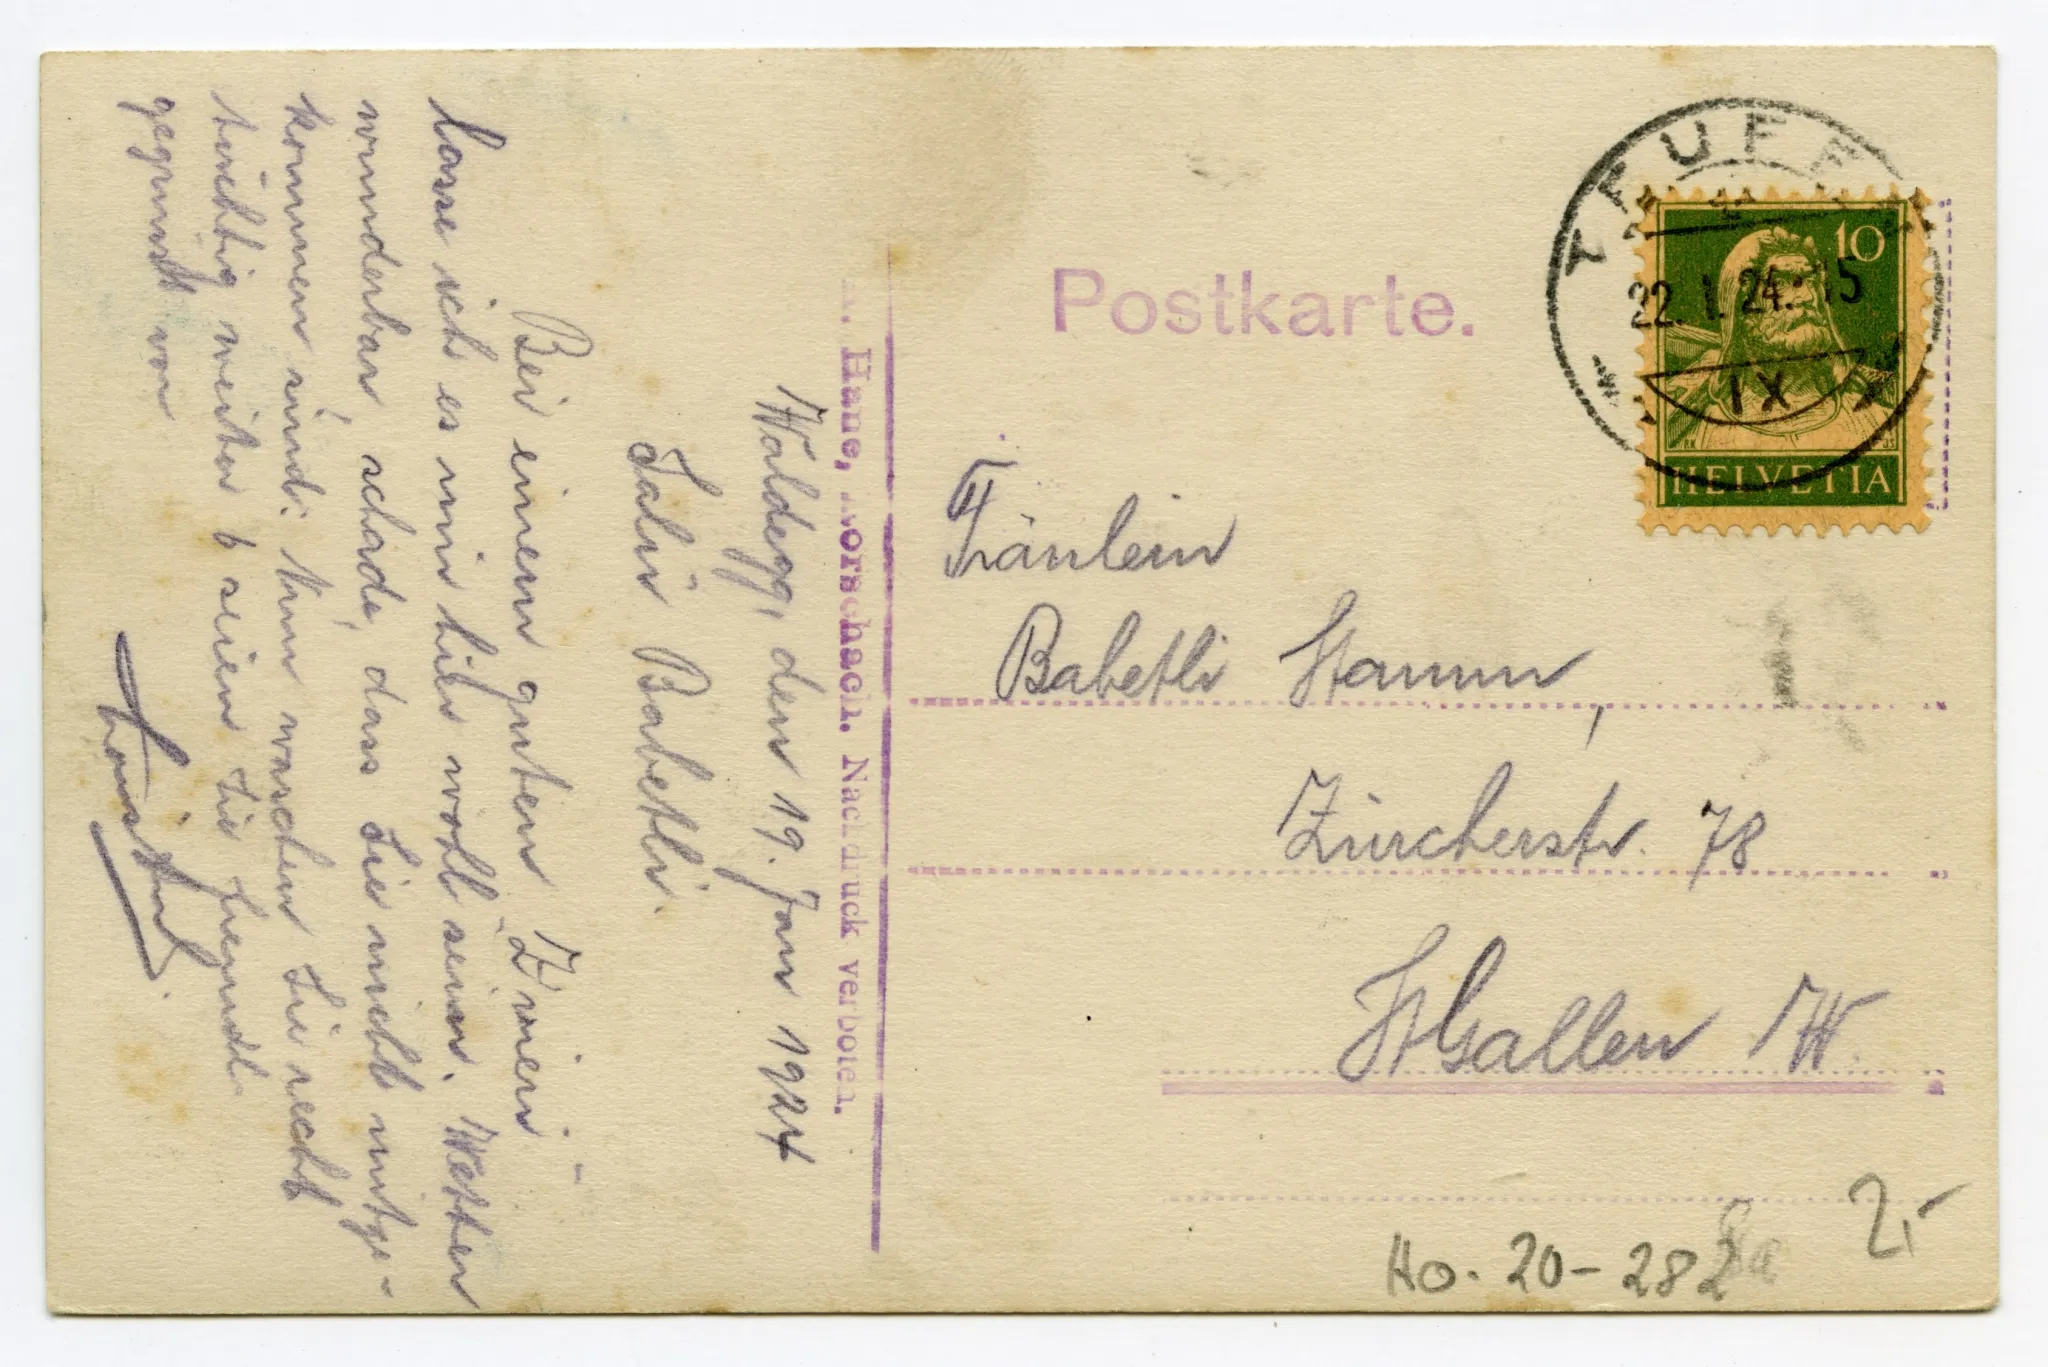 Waldegg, den 19. Jan 1924
Salü Babetli.
Bei einem guten Zvieri
lasse ich es mir hier wohl sein. Wetter
wunderbar, schade, dass Sie nicht mitge-
kommen sind. Nun warten Sie recht
tüchtig weiter & seien Sie freundl.
gegrüsst von
Hane, Rorschach. Nachdruck verboten.
Postkarte.
TEUFEN
22. I. 24. 15
IX
10
HELVETIA
Fräulein
Babetli Stamm,
Zürcherstr. 78
St Gallen W.
Ho. 20-282
2,-